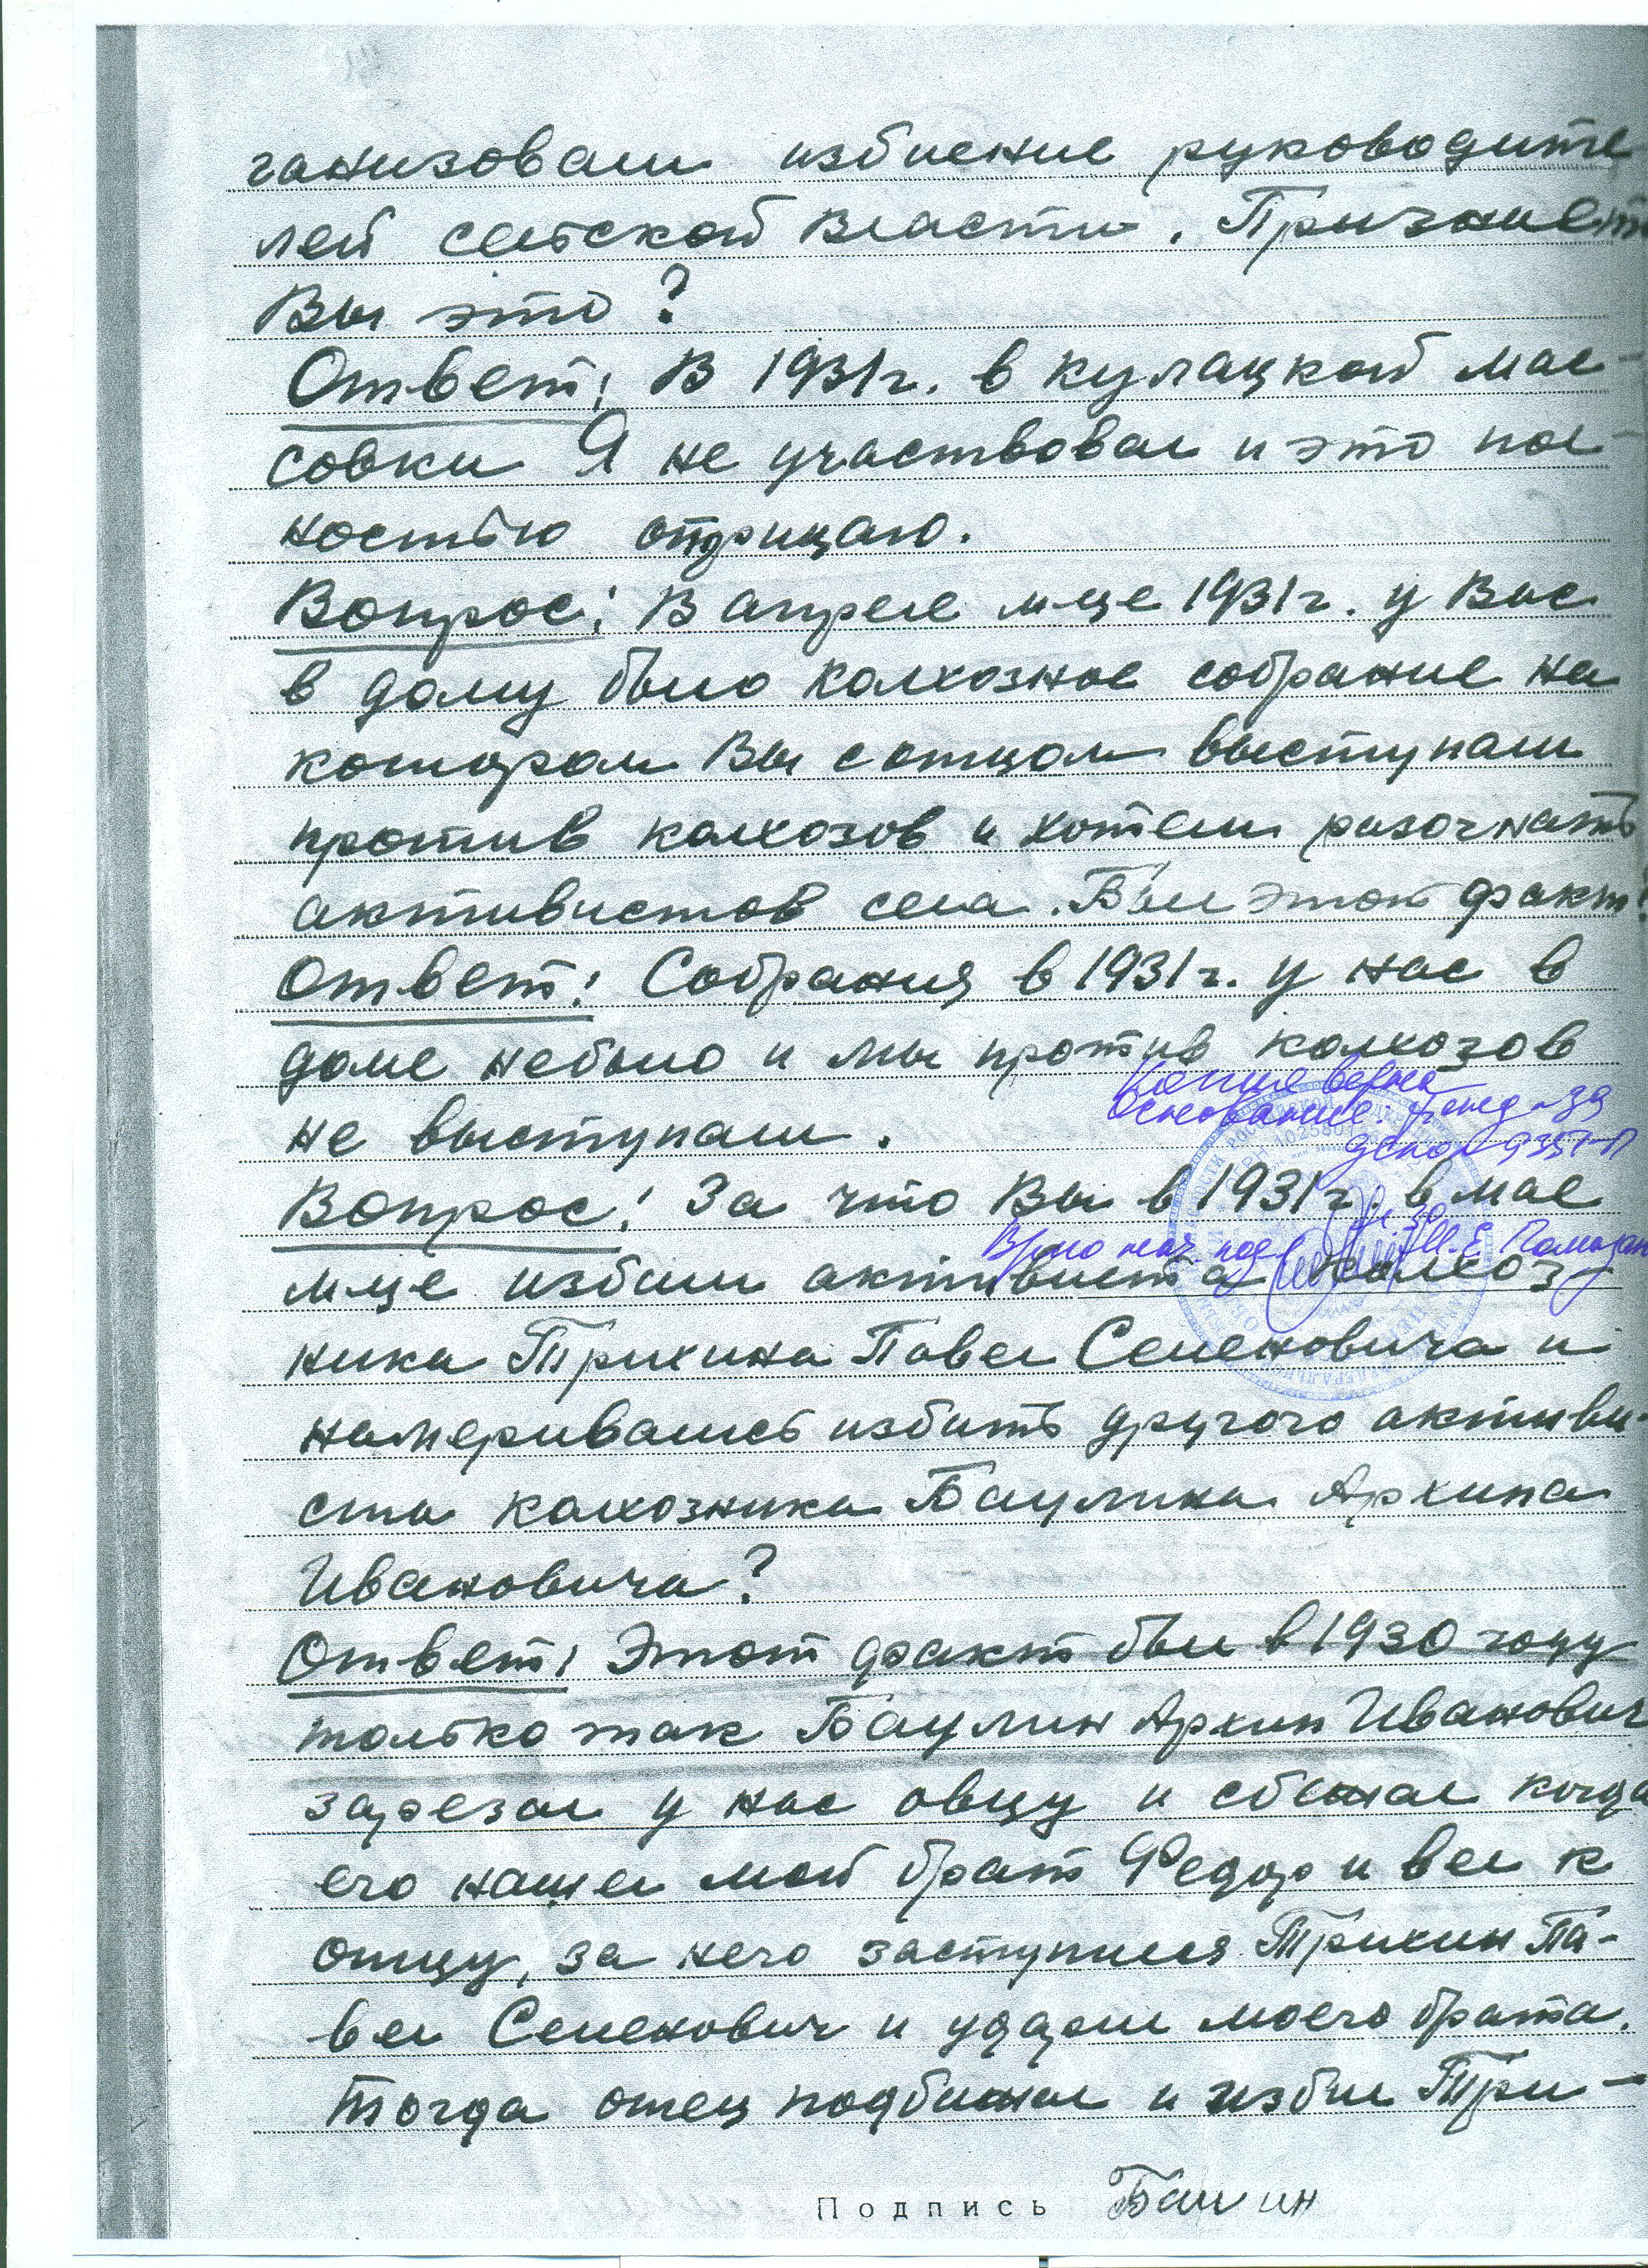 ганизовали избиение руководите
лей сельской власти. Признаете
Вы это?
Ответ: В 1931г. в кулацкой мас-
совки Я не участвовал и это пол-
ностью отрицаю.
Вопрос: В апреле м-це 1931г. у Вас
в дому было колхозное собрание на
котором Вы с отцом выступали
против колхозов и хотели разогнать
активистов села. Был этот факт
Ответ: Собрания в 1931г. у нас в
доме небыло и мы против колхозов
Копия верна
Основание: фонд
не выступали.
Вопрос: За что Вы в 1931г. в мае
Врио нач. под
м-це избили активиста колхоз-
ника Трихина Павел Семеновича и
намеривались избить другого активи-
ста колхозника Баулина Архипа
Ивановича?
Ответ: Этот факт был в 1930 году
только так Баулин Архип Иванович
зарезал у нас овцу и сбежал когда
его нашел мой брат Федор и вел к
отцу, за него заступился Трихин Па-
вел Семенович и ударил моего брата.
тогда отец подбижал и избил Три-
Подпись